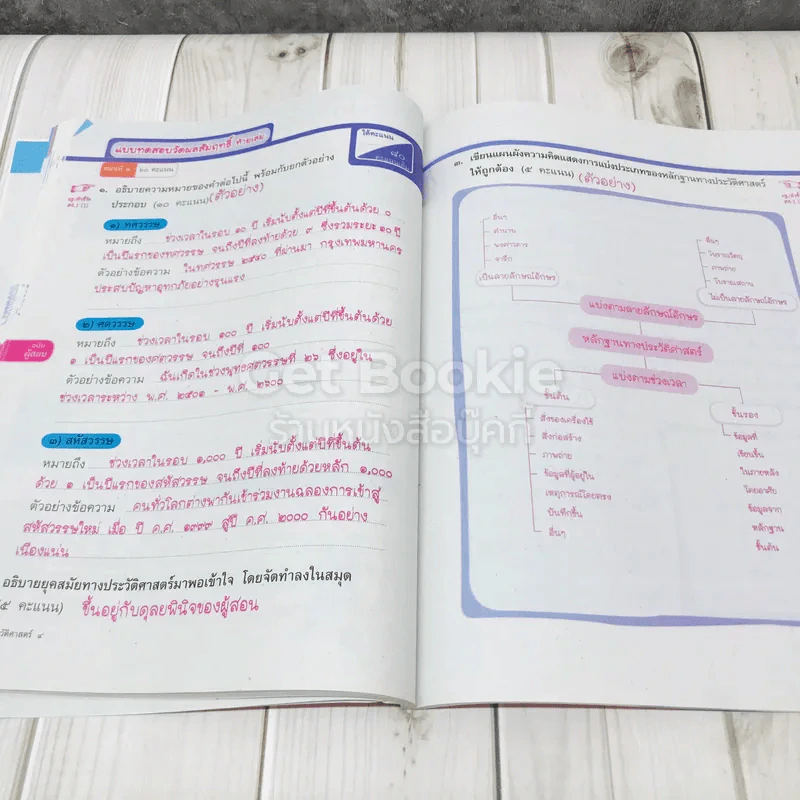 แบบทดสอบวัดผลสัมฤทธิ์ ท้ายเล่ม
ได้คะแนน
๔๐
ตอนที่ ๑ ๒๐ คะแนน
๑. อธิบายความหมายของคำต่อไปนี้ พร้อมกับยกตัวอย่าง
ประกอบ (๑๐ คะแนน) (ตัวอย่าง)
๑) ทศวรรษ
หมายถึง ช่วงเวลาในรอบ ๑๐ ปี เริ่มนับตั้งแต่ปีที่ขึ้นต้นด้วย ๐
เป็นปีแรกของทศวรรษ จนถึงปีที่ลงท้ายด้วย ๙ ซึ่งรวมระยะ ๑๐ ปี
ตัวอย่างข้อความ ในทศวรรษ ๒๕๔๐ ที่ผ่านมา กรุงเทพมหานคร
ประสบปัญหาอุทกภัยอย่างรุนแรง
๒) ศตวรรษ
หมายถึง ช่วงเวลาในรอบ ๑๐๐ ปี เริ่มนับตั้งแต่ปีที่ขึ้นต้นด้วย
๑ เป็นปีแรกของศตวรรษ จนถึงปีที่ ๑๐๐
ตัวอย่างข้อความ ฉันเกิดในช่วงพุทธศตวรรษที่ ๒๖ ซึ่งอยู่ใน
ช่วงเวลาระหว่าง พ.ศ. ๒๕๐๑ - พ.ศ. ๒๖๐๐
๓) สหัสวรรษ
หมายถึง ช่วงเวลาในรอบ ๑,๐๐๐ ปี เริ่มนับตั้งแต่ปีที่ขึ้นต้น
ด้วย ๑ เป็นปีแรกของสหัสวรรษ จนถึงปีที่ลงท้ายด้วยหลัก ๑,๐๐๐
ตัวอย่างข้อความ คนทั่วโลกต่างพากันเข้าร่วมงานฉลองการเข้าสู่
สหัสวรรษใหม่ เมื่อ ปี ค.ศ. ๑๙๙๙ สู่ปี ค.ศ. ๒๐๐๐ กันอย่าง
เนืองแน่น
อธิบายยุคสมัยทางประวัติศาสตร์มาพอเข้าใจ โดยจัดทำลงในสมุด
(๕ คะแนน) ขึ้นอยู่กับดุลยพินิจของผู้สอน
วัติศาสตร์ ๔
ฉบับ
ผู้สอน
๓. เขียนแผนผังความคิดแสดงการแบ่งประเภทของหลักฐานทางประวัติศาสตร์
ให้ถูกต้อง (๕ คะแนน) (ตัวอย่าง)
อื่นๆ
ตำนาน
พงศาวดาร
จารึก
เป็นลายลักษณ์อักษร
อื่นๆ
โบราณวัตถุ
ภาพถ่าย
โบราณสถาน
ไม่เป็นลายลักษณ์อักษร
แบ่งตามลายลักษณ์อักษร
หลักฐานทางประวัติศาสตร์
แบ่งตามช่วงเวลา
ชั้นต้น
สิ่งของเครื่องใช้
สิ่งก่อสร้าง
ภาพถ่าย
ข้อมูลที่ผู้อยู่ใน
เหตุการณ์โดยตรง
บันทึกขึ้น
อื่นๆ
ชั้นรอง
ข้อมูลที่
เขียนขึ้น
ในภายหลัง
โดยอาศัย
ข้อมูลจาก
หลักฐาน
ชั้นต้น
Get Bookie
ร้านหนังสือบุ๊คกี้